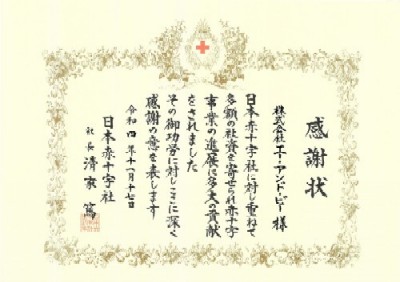 感謝状
株式会社エー・アンド・ビー様
日本赤十字社に対し重ねて
多額の社資を寄せられ赤十字
事業の進展に多大の貢献
をされました
その御功労に対しここに深く
感謝の意を表します
令和四年十一月十七日
日本赤十字社
社長 清家 篤